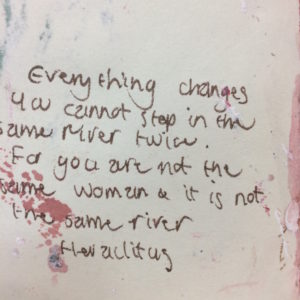 Everything changes
you cannot step in the
same river twice.
For you are not the
same woman & it is not
the same river
Heraclitus